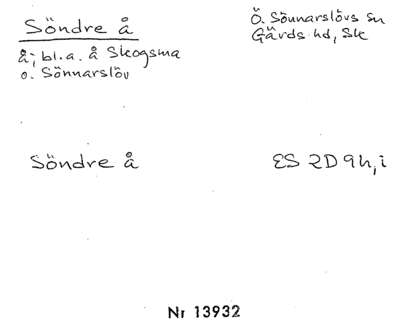 Söndre å
Ö. Sönnarslövs sn
Gärds hd, Sk
å; bl.a. å Skogsma
o. Sönnarslöv
Söndre å
ES 2D9h,i
Nr 13932